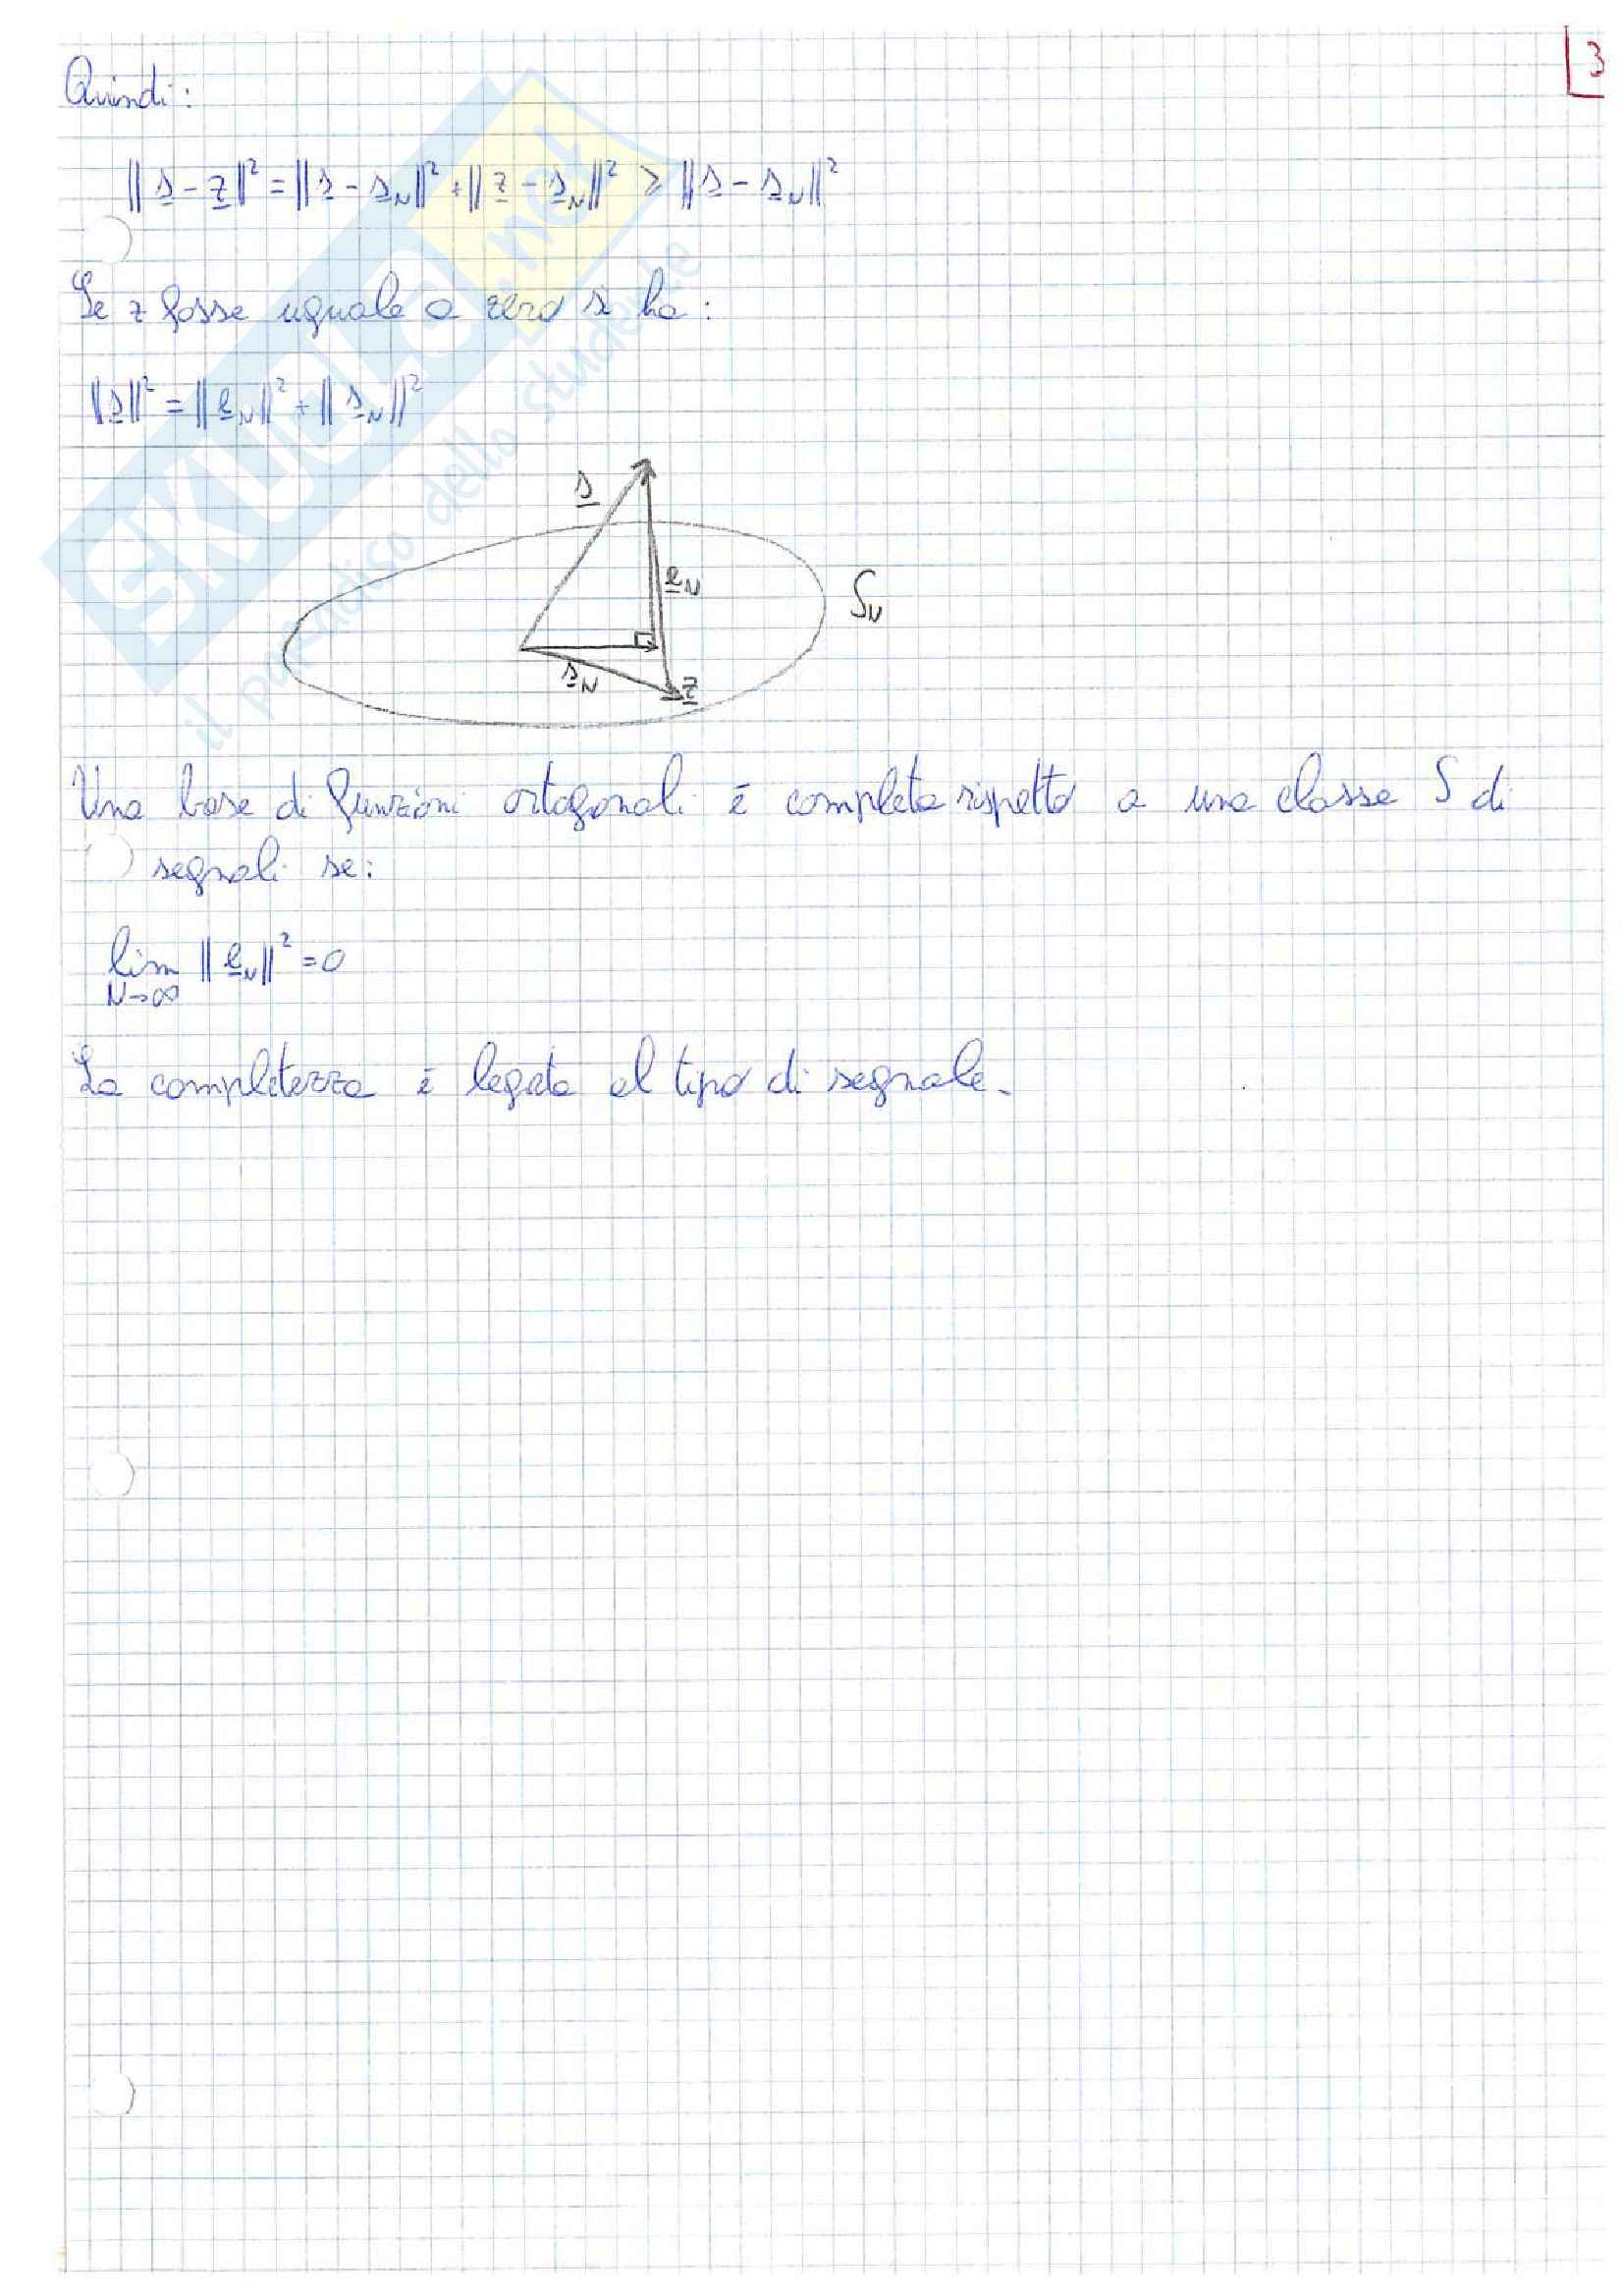 3
Quindi:
‖s - z‖² = ‖s - s_N‖² + ‖z - s_N‖² ≥ ‖s - s_N‖²
Se z fosse uguale a zero si ha:
‖s‖² = ‖e_N‖² + ‖s_N‖²
s
e_N
S_N
s_N
z
Una base di funzioni ortogonali è completa rispetto a una classe S di
segnali se:
lim ‖e_N‖² = 0
N→∞
La completezza è legata al tipo di segnale.
SKUOLA.net
il paradiso dello studente